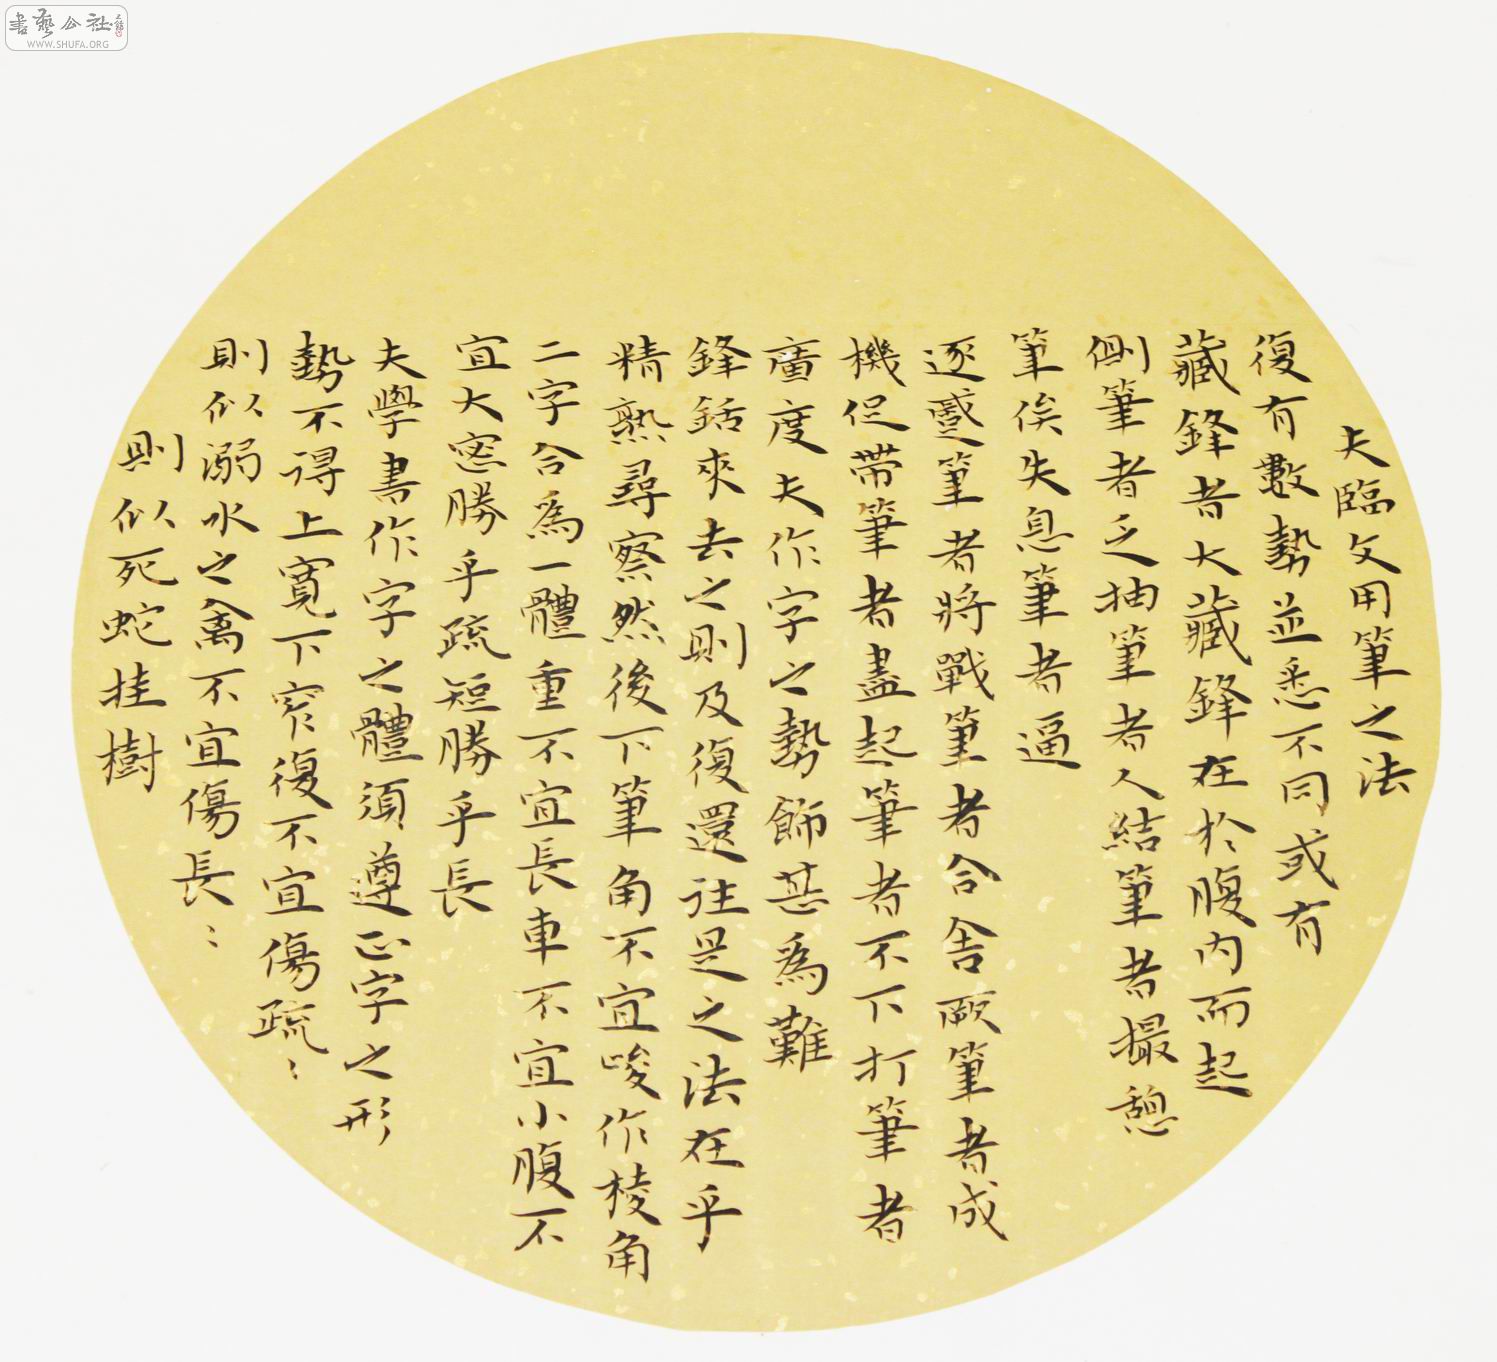 夫臨文用筆之法
復有數勢並悉不同或有
藏鋒者大藏鋒在於腹內而起
側筆者乏抽筆者人結筆者撮憩
筆俟失息筆者逼
逐蹙筆者將戰筆者合舍厥筆者成
機促帶筆者盡起筆者不下打筆者
廣度夫作字之勢飾甚為難
鋒銛來去之則及復還往是之法在乎
精熟尋察然後下筆角不宜峻作棱角
二字合為一體重不宜長車不宜小腹不
宜大密勝乎疏短勝乎長
夫學書作字之體須遵正字之形
勢不得上寬下窄復不宜傷疏:
則似溺水之禽不宜傷長:
則似死蛇挂樹
書藝公社
WWW.SHUFA.ORG